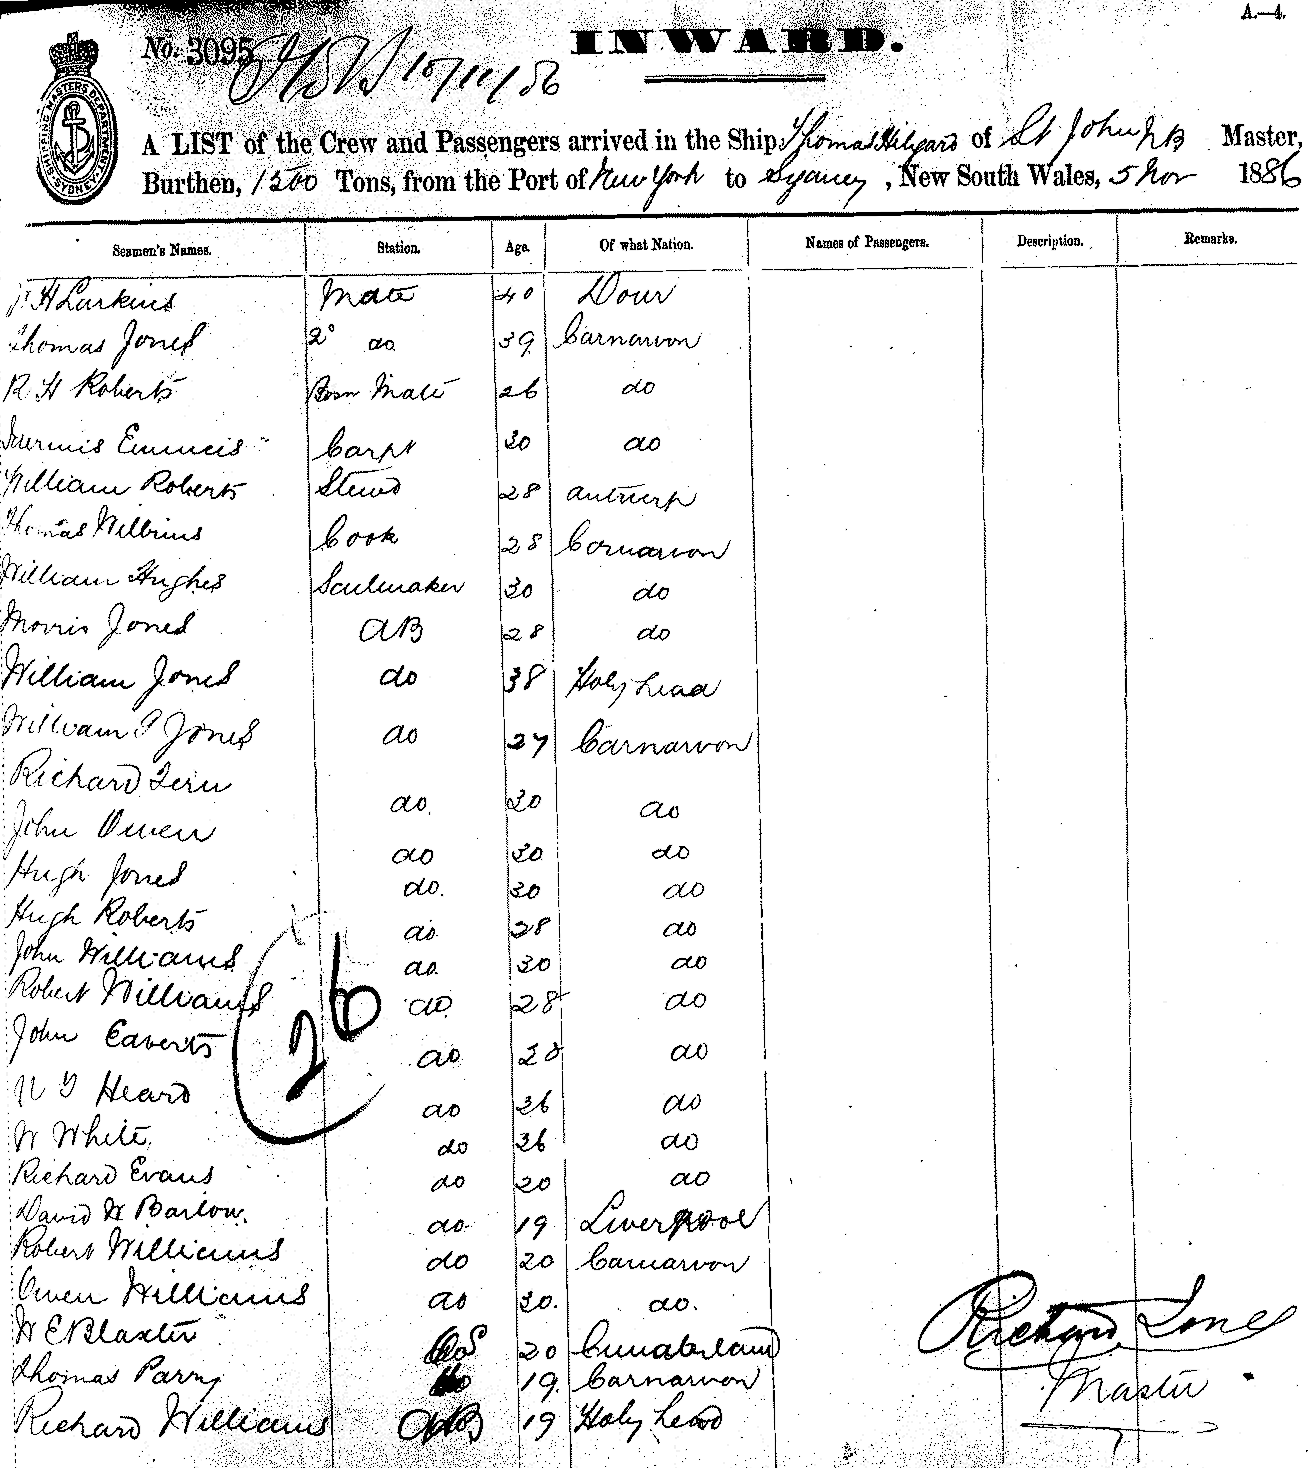 A.—4.
No. 3095 10/11/86 INWARD.
A LIST of the Crew and Passengers arrived in the Ship Thomas Hilyard of St John NB Master,
Burthen, 1500 Tons, from the Port of New York to Sydney, New South Wales, 5 Nov 1886
Seamen's Names. Station. Age. Of what Nation. Names of Passengers. Description. Remarks.
H Larkins Mate 40 Dour
Thomas Jones 2° do 39 Carnarvon
R H Roberts Bosn Mate 26 do
Carpt 30 do
William Roberts Stewd 28 Antwerp
Thomas 28 Cook Carnarvon
William Hughes Sailmaker 30 do
Morris Jones AB 28 do
William Jones do 38 Holyhead
William P Jones do 27 Carnarvon
Richard do 30 do
John Owen do 30 do
Hugh Jones do. 30 do
Hugh Roberts do 28 do
John Williams do 30 do
Robert Williams do 28 do
26
John do 28 do
Heard do 36 do
W White do 36 do
Richard Evans do 20 do
David H Barlow. do 19 Liverpool
Robert Williams do 20 Carnarvon
Owen Williams do 30. do.
W E Blaxter OS 20 Cumberland
Thomas Parry do 19 Carnarvon
Richard Williams AB 19 Holyhead
Richard Jones
Master